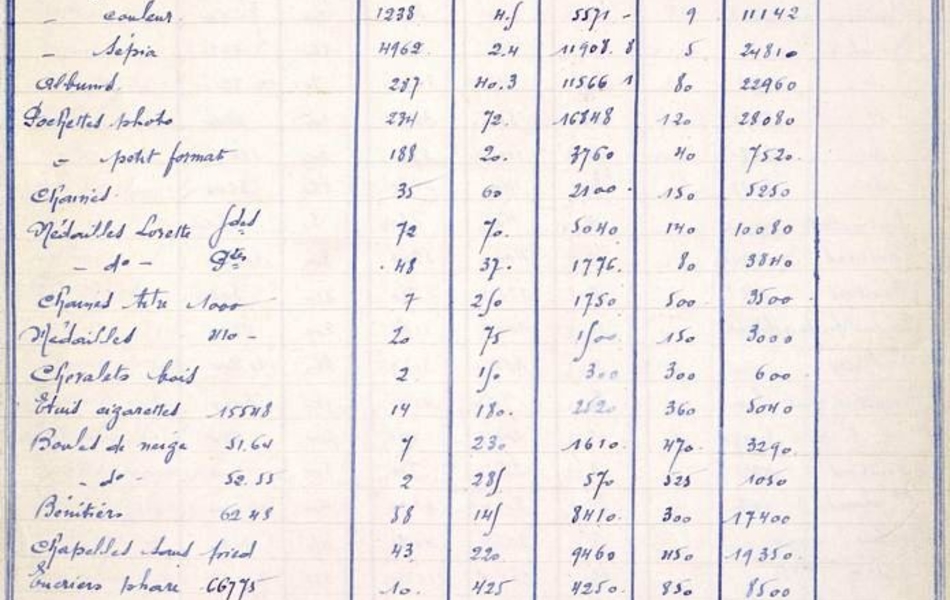 – couleur. 1238 4.5 5571 - 9 11142
– Sépia 4962 2.4 11908.8 5 24810
Albums. 287 40.3 11566 1 80 22960
Pochettes photo 234 72. 16848 120 28080
– petit format 188 20. 3760 40 7520
Chaines 35 60 2100 150 5250
Médailles Lorette gdes 72 70. 5040 140 10080
– do – Ptes 48 37. 1776. 80 3840
Chaines titre 1000 7 250 1750 500 3500
Médailles 20 75 1500 150 3000
Chevalets bois 2 150 300 300 600
Etuis cigarettes 15548 14 180. 2520 360 5040
Boules de neige 51.64 7 230 1610. 470. 3290.
– do – 52.55 2 285 570 525 1050
Bénitiers 58 145 8410. 300 17400
Chapelles sans pied 43 220 9460 450 19350
Encriers phare 66775 10. 425 4250. 850 8500